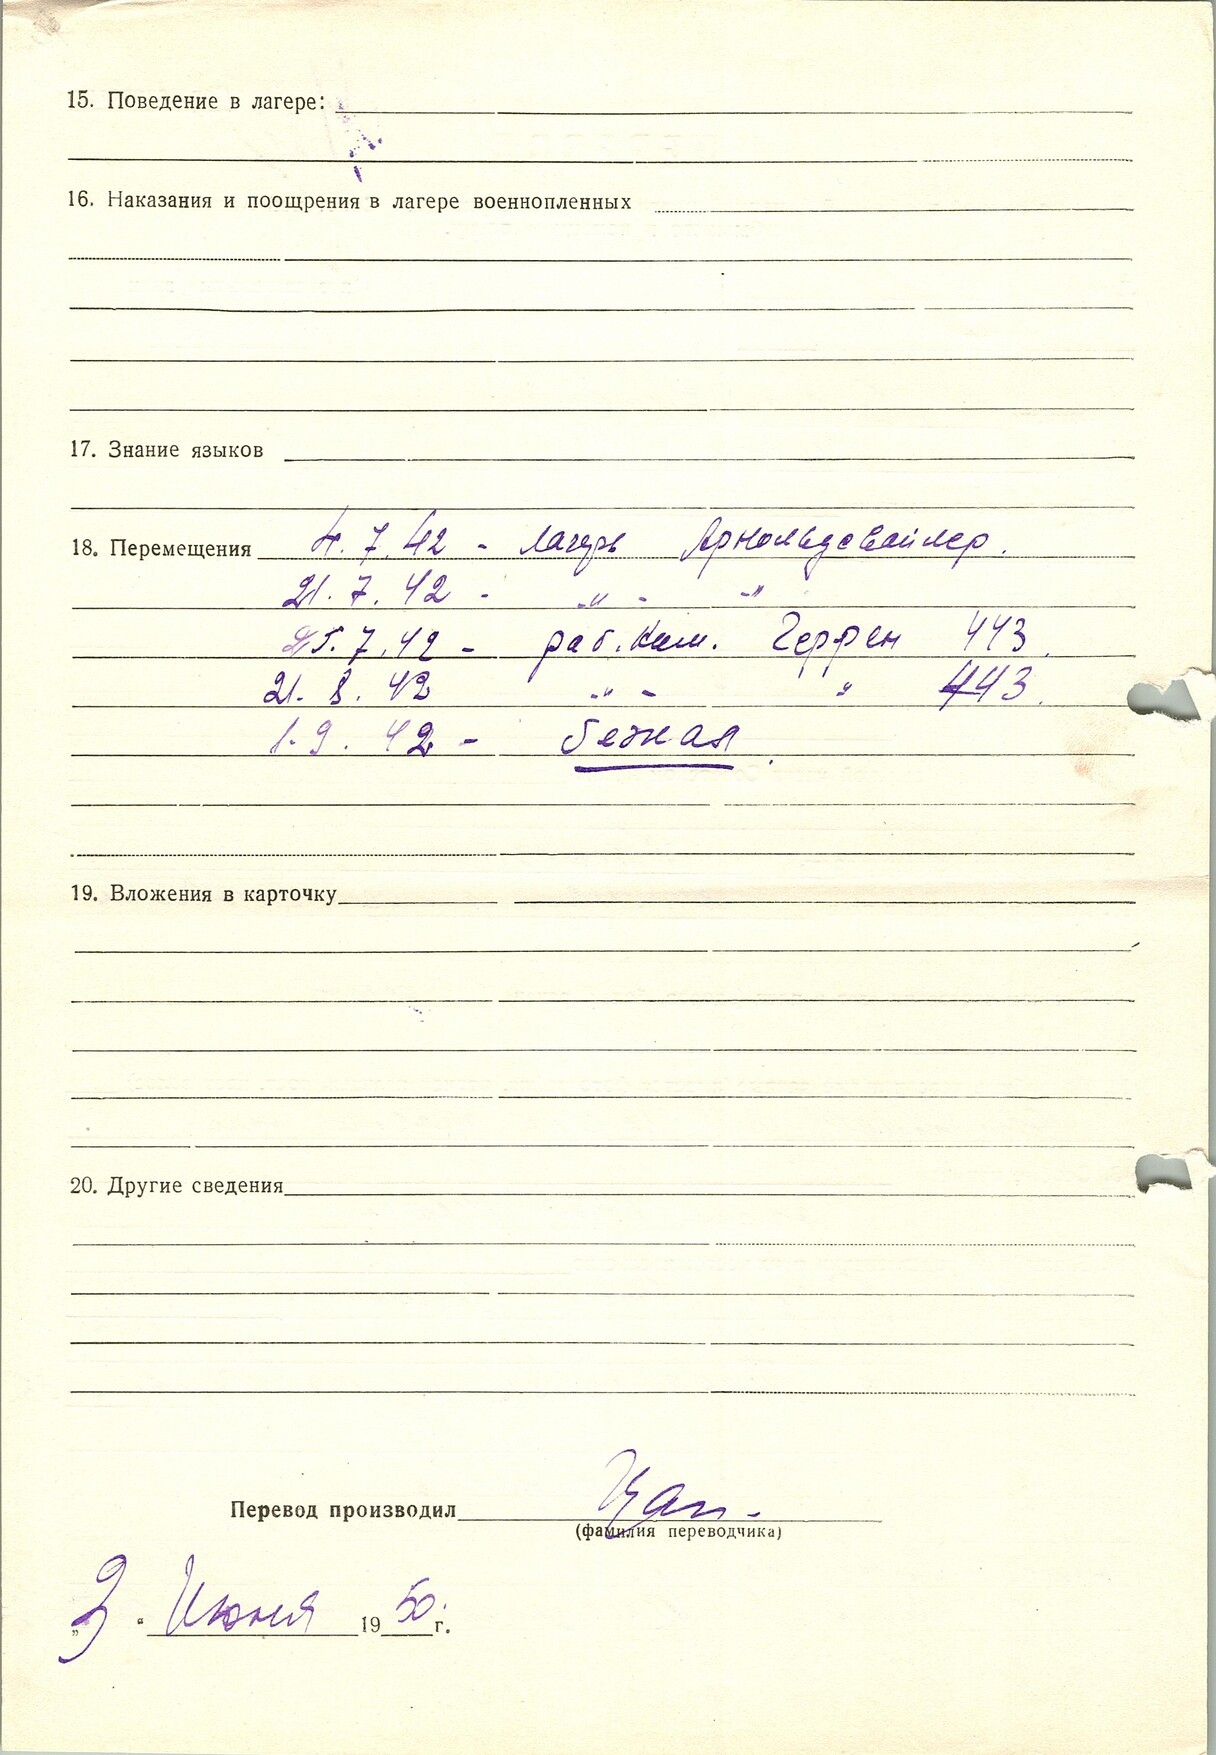 15. Поведение в лагере:
16. Наказания и поощрения в лагере военнопленных
17. Знание языков
18. Перемещения 4.7.42 - лагерь Арнольдсвайлер.
21.7.42 - -"- -"
25.7.42 - раб. Ком. Геррен 443.
21.8.42 -"- " 443.
1.9.42 - бежал.
19. Вложения в карточку
20. Другие сведения
Перевод производил
(фамилия переводчика)
„3“ Июня 1950 г.